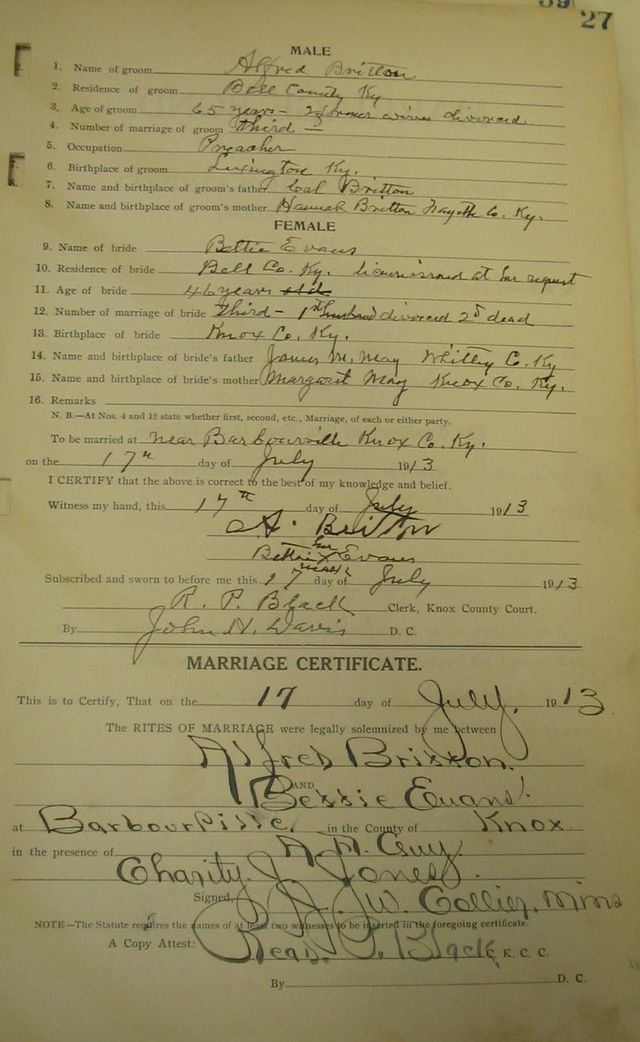 39
27
MALE
1. Name of groom Alfred Britton
2. Residence of groom Bell County Ky
3. Age of groom 65 years - 2 former wives divorced
4. Number of marriage of groom third
5. Occupation Preacher
6. Birthplace of groom Lexington Ky.
7. Name and birthplace of groom's father Cal Britton
8. Name and birthplace of groom's mother Hannah Britton Fayette Co. Ky.
FEMALE
9. Name of bride Bettie Evans
10. Residence of bride Bell Co. Ky. licen issued at her request
11. Age of bride 46 years old
12. Number of marriage of bride third - 1st husband divorced 2d dead
13. Birthplace of bride Knox Co. Ky.
14. Name and birthplace of bride's father James M. May Whitley Co. Ky
15. Name and birthplace of bride's mother Margaret May Knox Co. Ky.
16. Remarks
N. B.—At Nos. 4 and 12 state whether first, second, etc., Marriage, of each or either party.
To be married at near Barbourville Knox Co. Ky.
on the 17th day of July 1913
I CERTIFY that the above is correct to the best of my knowledge and belief.
Witness my hand, this 17th day of July 1913
A. Britton
her
Bettie X Evans
mark
Subscribed and sworn to before me this 17 day of July 1913
R. P. Black Clerk, Knox County Court.
By John H. Davis D. C.
MARRIAGE CERTIFICATE.
This is to Certify, That on the 17 day of July, 1913
The RITES OF MARRIAGE were legally solemnized by me between
Alfred Britton.
AND
Bettie Evans
at Barbourville, in the County of Knox
in the presence of A. M. Guy.
Charity J. Jones
Signed, J. W. Collier, Mins
NOTE—The Statute requires the names of at least two witnesses to be inserted in the foregoing certificate.
A Copy Attest: Read P. Black, K. C. C.
By D. C.